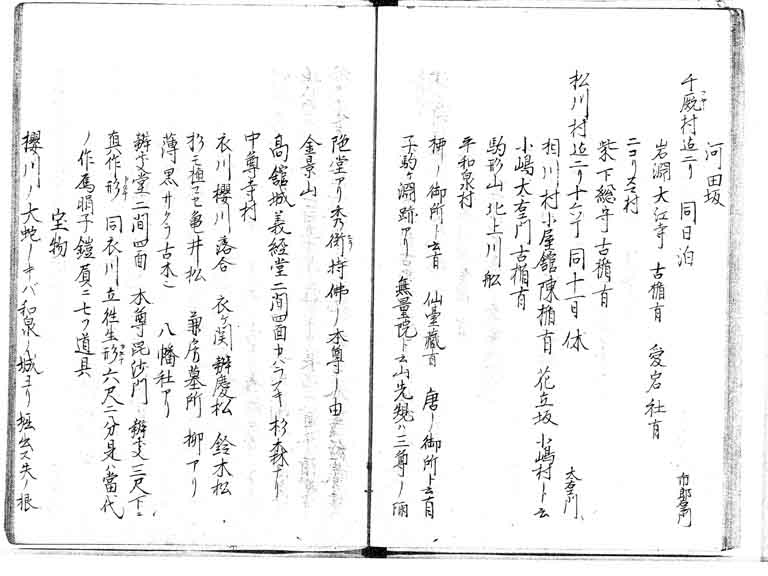 河田坂
千厩村迄二リ 同日泊 市郎右衛門
岩淵大江寺 古楯有 愛宕社有
二コリ村
柴下総守古楯有
松川村迄二リ十六丁 同十一日休 太右衛門
相川村小屋舘陳楯有 花立坂 小嶋村ト云
小嶋大右門古楯有
駒形山 北上川舩
平和泉村
押ノ御所ト云有 仙臺蔵有 唐ノ御所ト云有
子駒ヶ淵跡アリ 無量院ト云山先規ハ三尊ノ阿
陁堂アリ秀衡持佛ノ本尊ノ由
金景山
高舘城義経堂二間四面カハラフキ 杉森ナリ
中尊寺村
衣川櫻川落合 衣ヶ関 辨慶松 鈴木松
杉モ植ヱ 亀井松 兼房墓所 柳アリ
薄黒サクラ古木 八幡社アリ
辨天堂二間四面 本尊毘沙門 辨天三尺下ニ
直作形 同衣川立徃生形六尺二分是ハ當代
ノ作烏帽子鎧負ニ七ツ道具
宝物
櫻川ノ大蛇ノキバ和泉ノ城ヨリ堀出ス矢ノ根